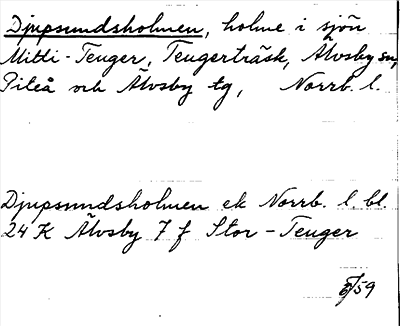 Djupsundsholmen, holme i sjön
Mitti-Teuger, Teugerträsk, Älvsby sn,
Piteå och Älvsby tg, Norrb. l.
Djupsundsholmen ek Norrb. l. bl.
24 K Älvsby 7 f Stor-Teuger
/59